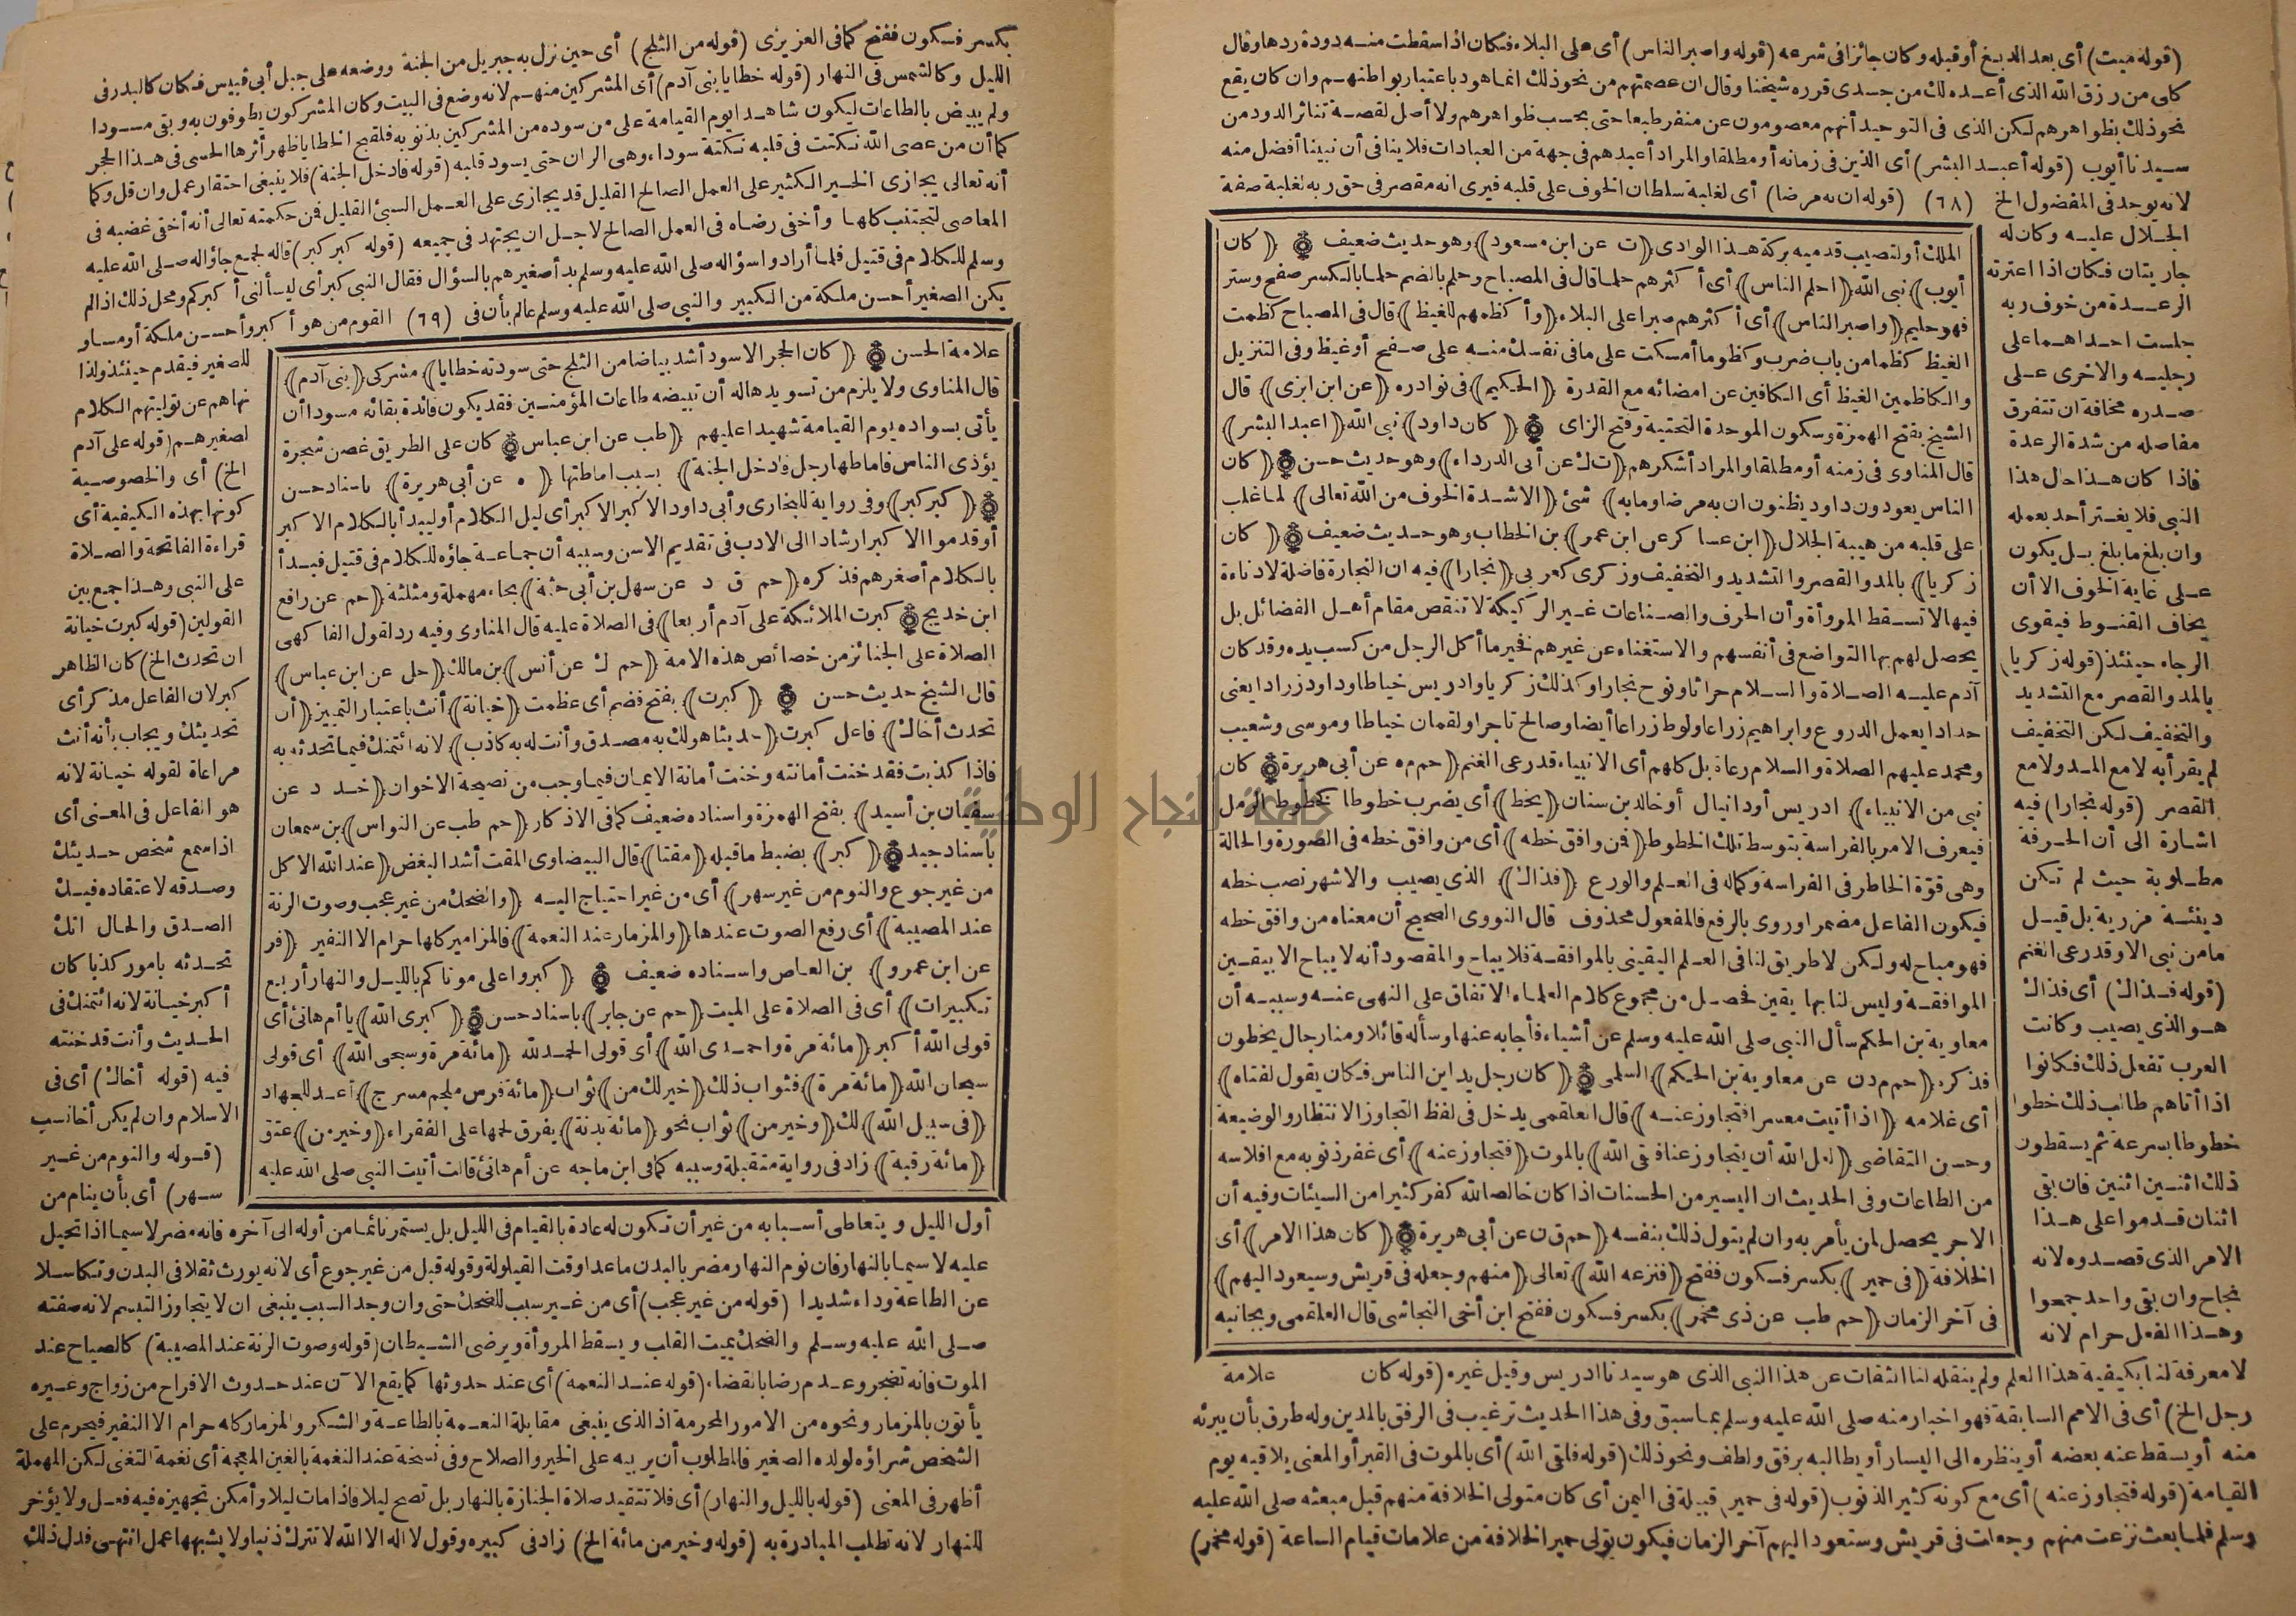 (قوله ميت) أى بعد الدبغ أو قبله وكان جائزا فى شرعه (قوله واصبر الناس) أى على البلاء فكان اذا سقطت منه دودة ردها وقال
كلى من رزق الله الذى أعده لك من جسدى قرره شيخنا وقال ان عصمتهم من نحو ذلك انما هو دباعتبار بواطنهم وان كان يقع
نحو ذلك بظواهرهم لكن الذى فى التوحيد أنهم معصومون عن منفر طبعا حتى بحسب ظواهرهم ولا أصل لقصة تناثر الدود من
سيدنا أيوب (قوله أعبد البشر) أى الذين فى زمانه أو مطلقا والمراد أعبدهم فى جهة من العبادات فلا ينافى أن نبينا أفضل منه
لانه يوجد فى المفضول الخ (٦٨) (قوله ان به مرضا) أى لغلبة سلطان الخوف على قلبه فيرى انه مقصر فى حق ربه لغلبة صفة
الجلال عليه وكان له
جاريتان فكان اذا اعترته
الرعدة من خوف ربه
جلست احداهما على
رجليه والاخرى على
صدره مخافة ان تتفرق
مفاصله من شدة الرعدة
فاذا كان هذا حال هذا
النبى فلا يغتر أحد بعمله
وان بلغ ما بلغ بل يكون
على غاية الخوف الا أن
يخاف القنوط فيقوى
الرجاء حينئذ (قوله زكريا)
بالمد والقصر مع التشديد
والتخفيف لكن التخفيف
لم يقرأ به لا مع المد ولا مع
القصر (قوله نجارا) فيه
اشارة الى أن الحرفة
مطلوبة حيث لم تكن
دينئة مزرية بل قيل
ما من نبى الا وقد رعى الغنم
(قوله فذاك) أى فذاك
هو الذى يصيب وكانت
العرب تفعل ذلك فكانوا
اذا أتاهم طالب ذلك خطوا
خطوطا بسرعة ثم يسقطون
ذلك اثنين اثنين فان بقى
اثنان قدموا على هذا
الامر الذى قصدوه لانه
نجاح وان بقى واحد جمعوا
وهذا الفعل حرام لانه
الملك أو لتصيب قدميه بركة هذا الوادى (ت عن ابن مسعود) وهو حديث ضعيف (كان
أيوب) نبى الله (احلم الناس) أى أكثرهم حلما قال فى المصباح وحلم بالضم حلما بالكسر صفح وستر
فهو حليم (واصبر الناس) أى أكثرهم صبرا على البلاء (وأكظمهم للغيظ) قال فى المصباح كظمت
الغيظ كظما من باب ضرب وكظوما أمسكت على ما فى نفسك منه على صفح أو غيظ وفى التنزيل
والكاظمين الغيظ أى الكافين عن امضائه مع القدرة (الحكيم) فى نوادره (عن ابن ابزى) قال
الشيخ بفتح الهمزة وسكون الموحدة التحتية وفتح الزاى (كان داود) نبى الله (اعبد البشر)
قال المناوى فى زمنه أو مطلقا والمراد أشكرهم (ت ك عن أبى الدرداء) وهو حديث حسن (كان
الناس يعودون داود يظنون ان به مرضا وما به) شئ (الا شدة الخوف من الله تعالى) لما غلب
على قلبه من هيبة الجلال (ابن عساكر عن ابن عمر) بن الخطاب وهو حديث ضعيف (كان
زكريا) بالمد والقصر والتشديد والتخفيف وزكرى كعربى (نجارا) فيه ان النجارة فاضلة لا دناءة
فيها لا تسقط المروأة وأن الحرف والصناعات غير الركيكة لا تنقص مقام أهل الفضائل بل
يحصل لهم بها التواضع فى أنفسهم والاستغناء عن غيرهم فخير ما أكل الرجل من كسب يده وقد كان
آدم عليه الصلاة والسلام حراثا ونوح نجارا وكذلك زكريا وادريس خياطا وداود زرادا يعنى
حدادا يعمل الدروع وابراهيم زراعا ولوط زراعا أيضا وصالح تاجرا ولقمان خياطا وموسى وشعيب
ومحمد عليهم الصلاة والسلام رعاة بل كلهم أى الانبياء قد رعى الغنم (حم م ه عن أبى هريرة) كان
نبى من الانبياء) ادريس أو دانيال أو خالد بن سنان (يخط) أى يضرب خطوطا كخطوط الرمل
فيعرف الامر بالفراسة بتوسط تلك الخطوط (فمن وافق خطه) أى من وافق خطه فى الصورة والحالة
وهى قوة الخاطر فى الفراسة وكماله فى العلم والورع (فذاك) الذى يصيب والاشهر نصب خطه
فيكون الفاعل مضمرا وروى بالرفع فالمفعول محذوف قال النووى الصحيح أن معناه من وافق خطه
فهو مباح له ولكن لا طريق لنا فى العلم اليقينى بالموافقة فلا يباح والمقصود أنه لا يباح الا بيقين
الموافقة وليس لنا بها يقين فحصل من مجموع كلام العلماء الاتفاق على النهى عنه وسببه أن
معاوية بن الحكم سأل النبى صلى الله عليه وسلم عن أشياء فأجابه عنها وسأله قائلا ومنا رجال يخطون
فذكره (حم م د ن عن معاوية بن الحكم) السلمى (كان رجل يداين الناس فكان يقول لفتاه)
أى غلامه (اذا أتيت معسرا فتجاوز عنه) قال العلقمى يدخل فى لفظ التجاوز الانتظار والوضيعة
وحسن التقاضى (لعل الله أن يتجاوز عنا فلقى الله) بالموت (فتجاوز عنه) أى غفر ذنوبه مع افلاسه
من الطاعات وفى الحديث ان اليسير من الحسنات اذا كان خالصا لله كفر كثيرا من السيئات وفيه أن
الاجر يحصل لمن يأمر به وان لم يتول ذلك بنفسه (حم ق ن عن أبى هريرة) (كان هذا الامر) أى
الخلافة (فى حمير) بكسر فسكون ففتح (فنزعه الله) تعالى (منهم وجعله فى قريش وسيعود اليهم)
فى آخر الزمان (حم طب عن ذى مخمر) بكسر فسكون ففتح ابن أخى النجاشى قال العلقمى وبجانبه
لا معرفة لنا بكيفية هذا العلم ولم ينقله لنا الثقات عن هذا النبى الذى هو سيدنا ادريس وقيل غيره (قوله كان علامة
رجل الخ) أى فى الامم السابقة فهو اخبار منه صلى الله عليه وسلم بما سبق وفى هذا الحديث ترغيب فى الرفق بالمدين وله طرق بأن يبرئه
منه أو يسقط عنه بعضه أو ينظره الى اليسار أو يطالبه برفق ولطف ونحو ذلك (قوله فلقى الله) أى بالموت فى القبر أو المعنى يلاقيه يوم
القيامة (قوله فتجاوز عنه) أى مع كونه كثير الذنوب (قوله فى حمير) قبيلة فى اليمن أى كان متولى الخلافة منهم قبل مبعثه صلى الله عليه
وسلم فلما بعث نزعت منهم وجعلت فى قريش وستعود اليهم آخر الزمان فيكون تولى حمير الخلافة من علامات قيام الساعة (قوله مخمر)
بكسر فسكون ففتح كما فى العزيزى (قوله من الثلج) أى حين نزل به جبريل من الجنة ووضعه على جبل أبى قبيس فكان كالبدر فى
الليل وكالشمس فى النهار (قوله خطايا بنى آدم) أى المشركين منهم لانه وضع فى البيت وكان المشركون يطوفون به وبقى مسودا
ولم يبيض بالطاعات ليكون شاهدا يوم القيامة على من سوده من المشركين بذنوبه فلقبح الخطايا ظهر أثرها الحسى فى هذا الحجر
كما أن من عصى الله نكتت فى قلبه نكتة سوداء وهى الران حتى يسود قلبه (قوله فادخل الجنة) فلا ينبغى احتقار عمل وان قل وكما
أنه تعالى يجازى الخير الكثير على العمل الصالح القليل قد يجازى على العمل السيئ القليل فمن حكمته تعالى أنه أخفى غضبه فى
المعاصى لتجتنب كلها وأخفى رضاه فى العمل الصالح لاجل ان يجتهد فى جميعه (قوله كبر كبر) قاله لجمع جاؤاله صلى الله عليه
وسلم للكلام فى قتيل فلما أرادوا سؤاله صلى الله عليه وسلم بدأ صغيرهم بالسؤال فقال النبى كبر أى ليسألنى أكبركم ومحل ذلك اذا لم
يكن الصغير أحسن ملكة من الكبير والنبى صلى الله عليه وسلم عالم بأن فى (٦٩) القوم من هو أكبر وأحسن ملكة أو مساو
للصغير فيقدم حينئذ ولذا
نهاهم عن توليتهم الكلام
لصغيرهم (قوله على آدم
الخ) أى والخصوصية
كونها بهذه الكيفية أى
قراءة الفاتحة والصلاة
على النبى وهذا جمع بين
القولين (قوله كبرت خيانة
ان تحدث الخ) كان الظاهر
كبر لان الفاعل مذكر أى
تحديثك ويجاب بأنه أنث
مراعاة لقوله خيانة لانه
هو الفاعل فى المعنى أى
اذا سمع شخص حديثك
وصدقه لاعتقاده فيك
الصدق والحال انك
تحدثه بامور كذبا كان
أكبر خيانة لانه ائتمنك فى
الحديث وأنت قد خنته
فيه (قوله أخاك) أى فى
الاسلام وان لم يكن أخا نسب
(قوله والنوم من غير
سهر) أى بأن ينام من
علامة الحسن (كان الحجر الاسود أشد بياضا من الثلج حتى سودته خطايا) مشركى (بنى آدم)
قال المناوى ولا يلزم من تسويدها له أن تبيضه طاعات المؤمنين فقد يكون فائدة بقائه مسودا أن
يأتى بسواده يوم القيامة شهيدا عليهم (طب عن ابن عباس) كان على الطريق غصن شجرة
يؤذى الناس فاماطها رجل فادخل الجنة) بسبب اماطتها (ه عن أبى هريرة) باسناد حسن
(كبر كبر) وفى رواية للبخارى وأبى داود الاكبر الاكبر أى ليل الكلام أو ليبدأ بالكلام الاكبر
أو قدموا الاكبر ارشادا الى الادب فى تقديم الاسن وسببه أن جماعة جاؤه للكلام فى قتيل فبدأ
بالكلام أصغرهم فذكره (حم ق د عن سهل بن أبى حثمة) بحاء مهملة ومثلثة (حم عن رافع
ابن خديج) كبرت الملائكة على آدم أربعا) فى الصلاة عليه قال المناوى وفيه رد لقول الفاكهى
الصلاة على الجنائز من خصائص هذه الامة (حم ك عن أنس) بن مالك (حل عن ابن عباس)
قال الشيخ حديث حسن (كبرت) بفتح فضم أى عظمت (خيانة) أنث باعتبار التمييز (أن
تحدث أخاك) فاعل كبرت (حديثا هو لك به مصدق وأنت له به كاذب) لانه ائتمنك فيما تحدثه به
فاذا كذبت فقد خنت أمانته وخنت أمانة الايمان فيما وجب من نصيحة الاخوان (خد د عن
سفيان بن أسيد) بفتح الهمزة واسناده ضعيف كما فى الاذكار (حم طب عن النواس) بن سمعان
باسناد جيد (كبر) بضبط ما قبله (مقتا) قال البيضاوى المقت أشد البغض (عند الله الاكل
من غير جوع والنوم من غير سهر) أى من غير احتياج اليه (والضحك من غير عجب وصوت الرنة
عند المصيبة) أى رفع الصوت عندها (والمزمار عند النعمة) فالمزامير كلها حرام الا النفير (فر
عن ابن عمرو) بن العاص واسناده ضعيف (كبروا على موتاكم بالليل والنهار أربع
تكبيرات) أى فى الصلاة على الميت (حم عن جابر) باسناد حسن (كبرى الله) يا أم هانئ أى
قولى الله أكبر (مائة مرة واحمدى الله) أى قولى الحمد لله (مائة مرة وسبحى الله) أى قولى
سبحان الله (مائة مرة) فثواب ذلك (خير لك من) ثواب (مائة فرس ملجم مسرج) أعد للجهاد
(فى سبيل الله) لك (وخير من) ثواب نحو (مائة بدنة) يفرق لحمها على الفقراء (وخير من) عتق
(مائة رقبة) زاد فى رواية متقبلة وسببه كما فى ابن ماجه عن أم هانئ قالت أتيت النبى صلى الله عليه
أول الليل ويتعاطى أسبابه من غير أن تكون له عادة بالقيام فى الليل بل يستمر نائما من أوله الى آخره فانه مضر لا سيما اذا تحيل
عليه لا سيما بالنهار فان نوم النهار مضر بالبدن ما عدا وقت القيلولة وقوله قبل من غير جوع أى لانه يورث ثقلا فى البدن وتكاسلا
عن الطاعة وداء شديدا (قوله من غير عجب) أى من غير سبب للضحك حتى وان وجد السبب ينبغى ان لا يتجاوز التبسم لانه صفته
صلى الله عليه وسلم والضحك يميت القلب ويسقط المروأة ويرضى الشيطان (قوله وصوت الرنة عند المصيبة) كالصياح عند
الموت فانه تضجر وعدم رضا بالقضاء (قوله عند النعمة) أى عند حدوثها كما يقع الآن عند حدوث الافراح من زواج وغيره
يأتون بالمزمار ونحوه من الامور المحرمة اذ الذى ينبغى مقابلة النعمة بالطاعة والشكر والمزمار كله حرام الا النفير فيحرم على
الشخص شراؤه لولده الصغير فالمطلوب أن يربيه على الخير والصلاح وفى نسخة عند النغمة بالغين المعجمة أى نغمة التغنى لكن المهملة
أظهر فى المعنى (قوله بالليل والنهار) أى فلا تتقيد صلاة الجنازة بالنهار بل تصح ليلا فاذا مات ليلا وأمكن تجهيزه فيه فعل ولا يؤخر
للنهار لانه تطلب المبادرة به (قوله وخير من مائة الخ) زاد فى كبيره وقول لا اله الا الله لا تترك ذنبا ولا يشبهها عمل انتهى فدل ذلك
جامعة النجاح الوطنية